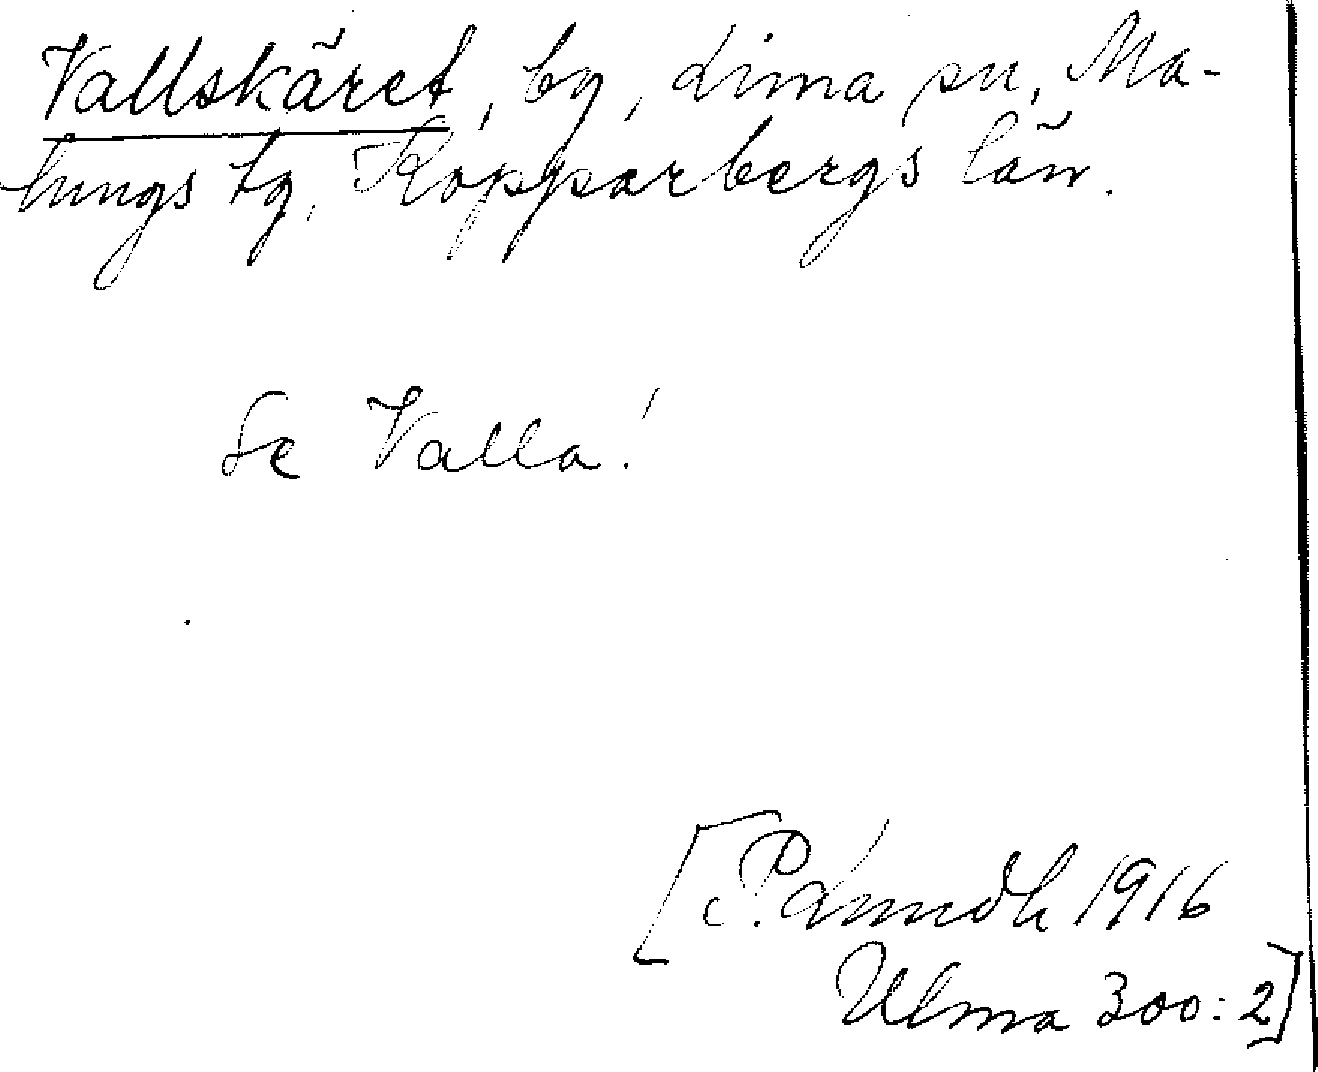 Vallskäret, by, Lima sn, Ma-
lungs tg, Kopparbergs län.
Se Valla!
[P. Linndh 1916
Ulma 300:2]